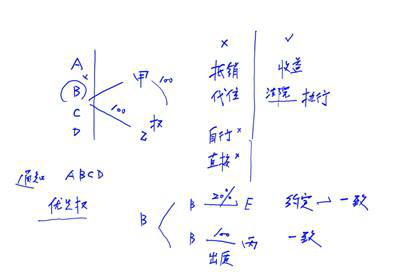 A
B
C
D
甲 100
100
乙 权
× ✓
抵销 收益
代位 法院 执行
自行 ×
直接 ×
通知 ABCD
优先权
B
B 20% E 约定 → 一致
B 100 丙 一致
出质